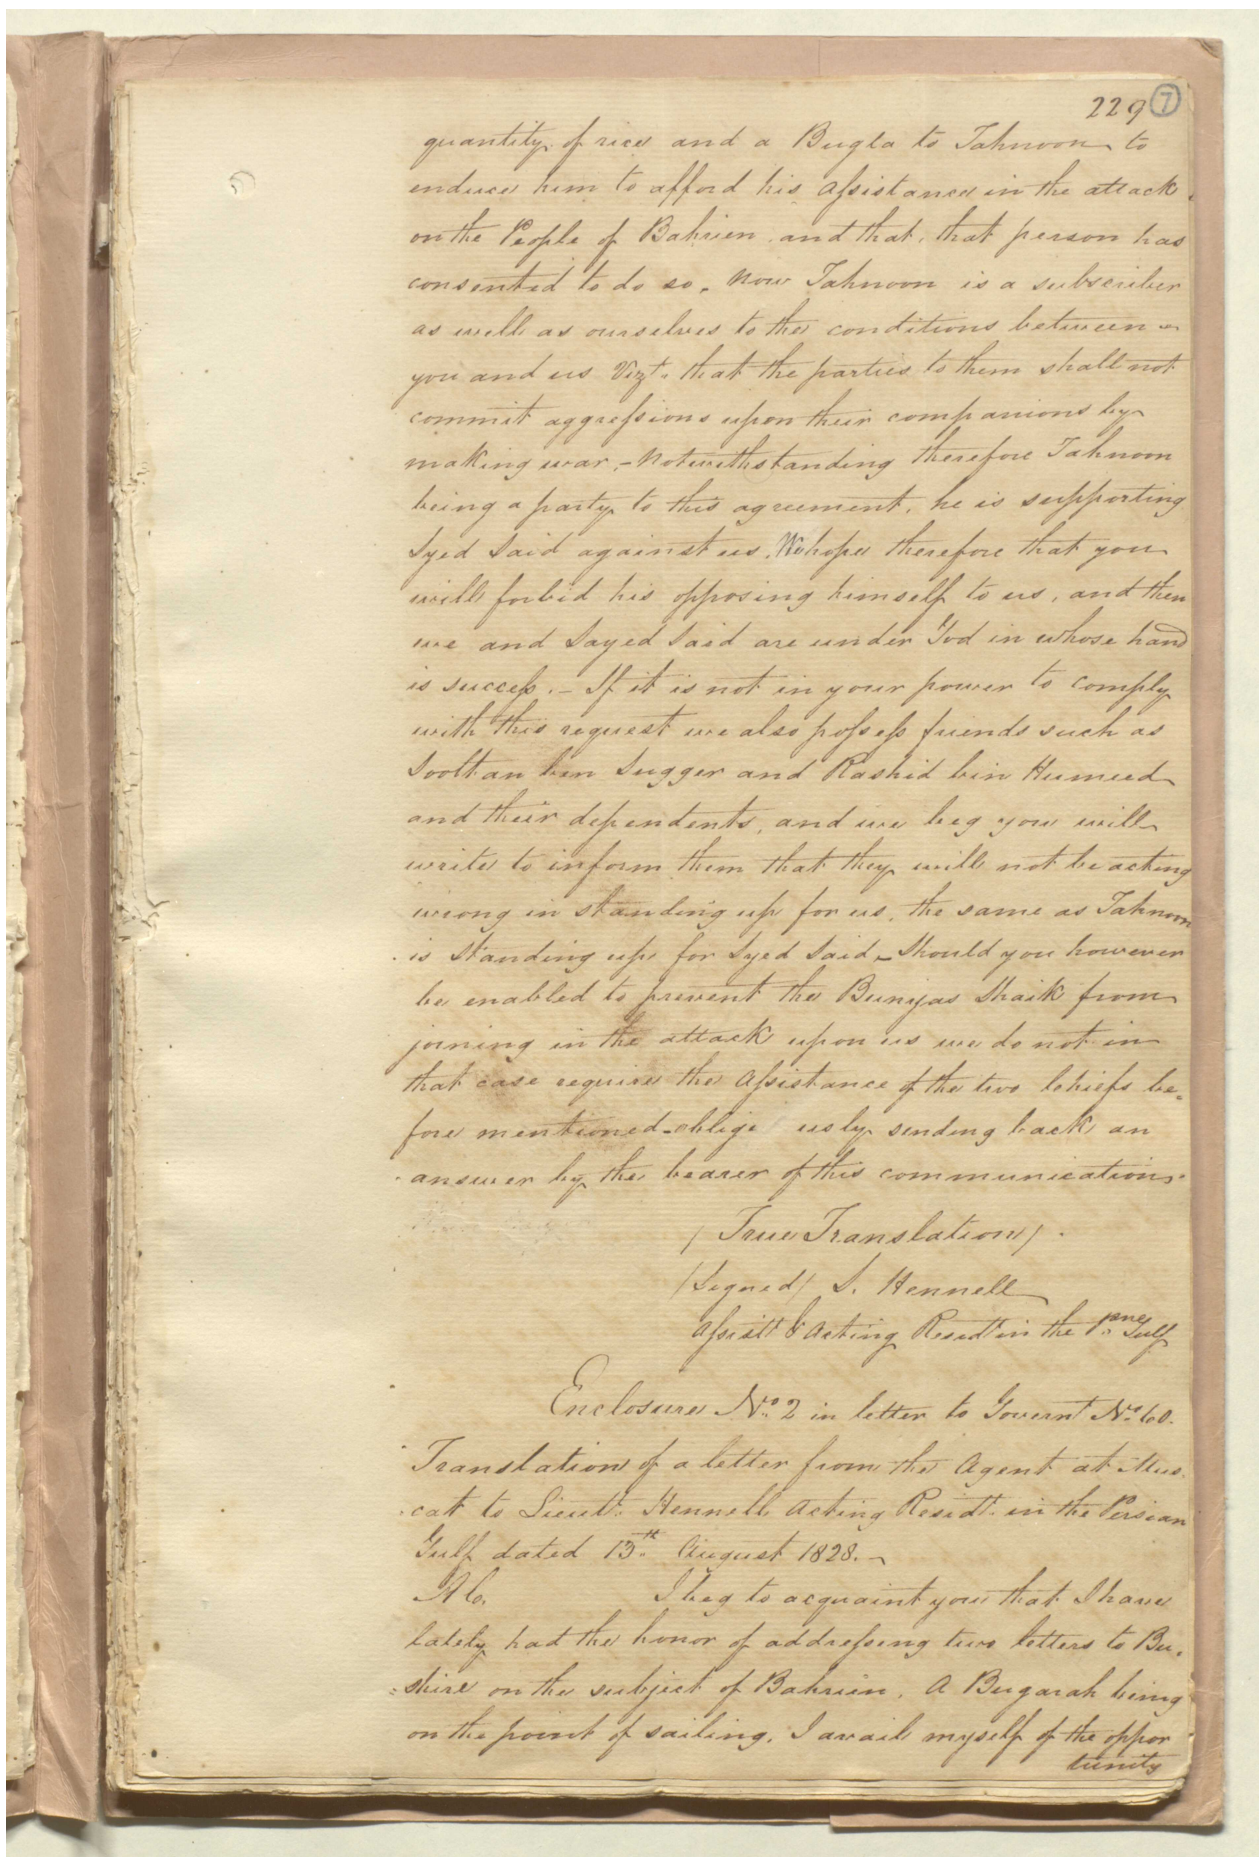 229 7
quantity of rice and a Bugla to Tahnoon to
enduce him to afford his Assistance in the attack
on the People of Bahrien, and that, that person has
consented to do so. Now Tahnoon is a subscriber
as well as ourselves to the conditions between
you and us Vizt. that the parties to them shall not
commit aggressions upon their companions by
making war, - Notwithstanding therefore Tahnoon
being a party to this agreement, he is supporting
Syed Said against us. We hope therefore that you
will forbid his opposing himself to us, and then
we and Sayed Said are under God in whose hand
is success. - If it is not in your power to comply
with this request we also possess friends such as
Sooltan bin Sugger and Rashid bin Humeed
and their dependents, and we beg you will
write to inform them that they will not be acting
wrong in standing up for us, the same as Tahnoon
is standing up for Syed Said - Should you however
be enabled to prevent the Buniyas Shaik from
joining in the attack upon us we do not in
that case require the Assistance of the two Chiefs be-
fore mentioned - oblige us by sending back an
answer by the bearer of this communication.
/ True Translation /
/ Signed / S. Hennell
Assistt & Acting Residt in the Pne Gulf
Enclosure No. 2 in letter to Governt No. 60.
Translation of a letter from the Agent at Mus-
cat to Lieutt. Hennell Acting Residt. in the Persian
Gulf dated 13th. August 1828. -
A C. I beg to acquaint you that I have
lately had the honor of addressing two letters to Bu-
=shire on the subject of Bahrien. A Bugarah being
on the point of sailing, I avail myself of the oppor
tunity